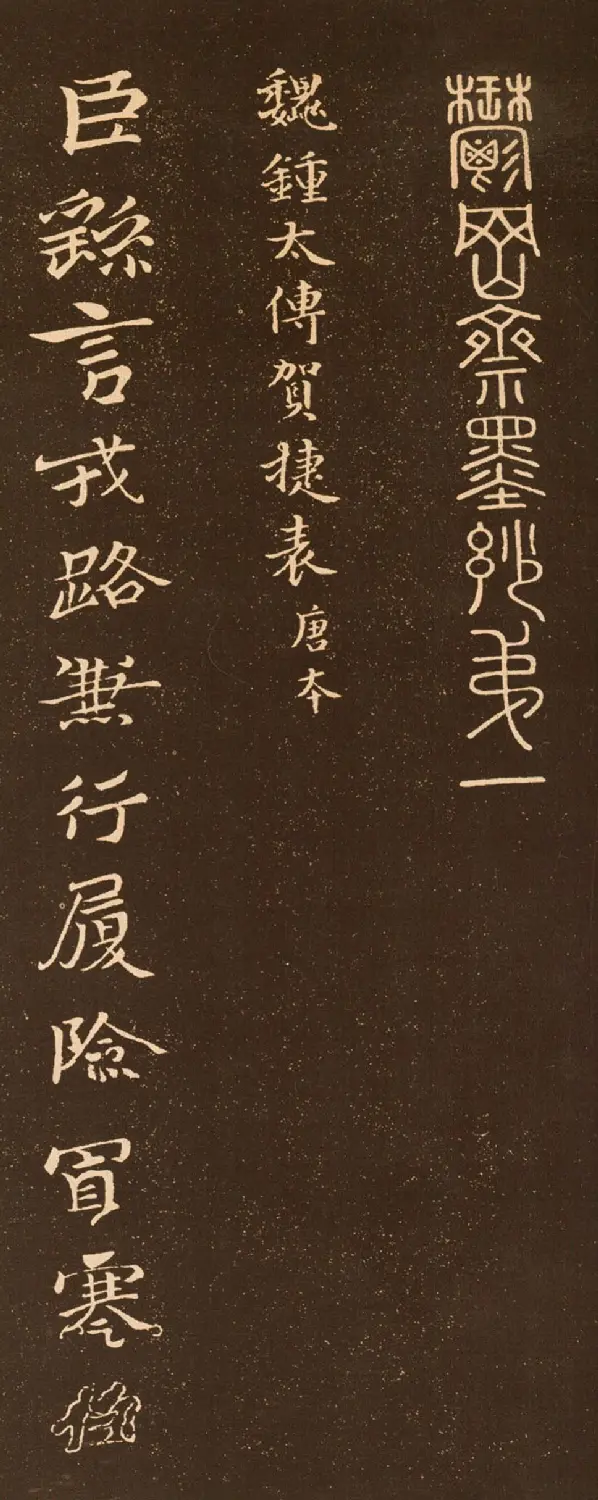 鬱岡齋墨玅弟一
魏鍾太傅賀捷表 唐夲
臣繇言戎路兼行履險冒寒